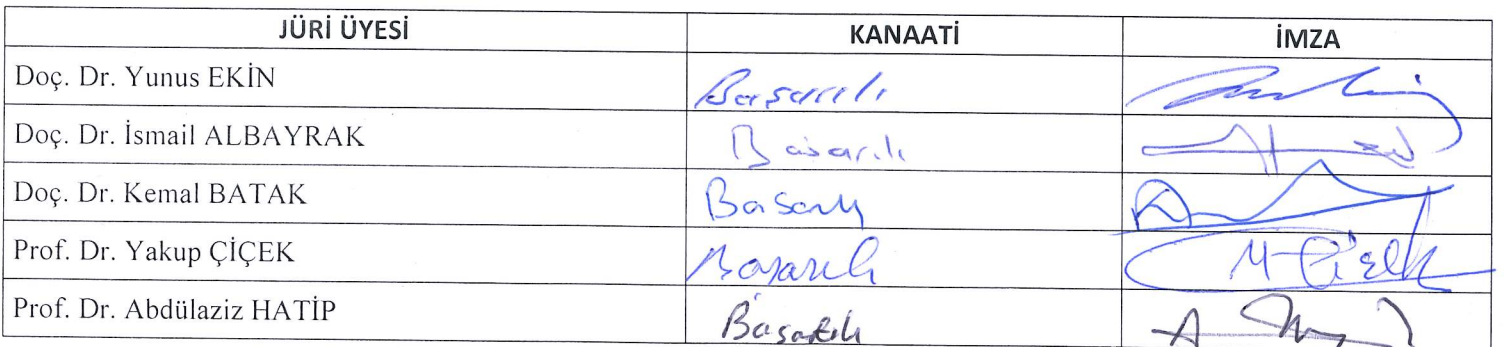 JÜRİ ÜYESİ KANAATİ İMZA
Doç. Dr. Yunus EKİN Başarılı
Doç. Dr. İsmail ALBAYRAK Başarılı
Doç. Dr. Kemal BATAK Başarılı
Prof. Dr. Yakup ÇİÇEK Başarılı
Prof. Dr. Abdülaziz HATİP Başarılı